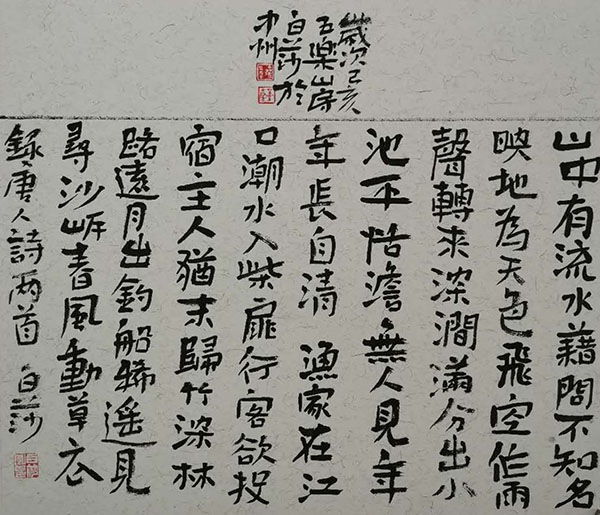 歲次己亥
五樂山房
白莎於
中州
山中有流水藉問不知名
映地為天色飛空作雨
聲轉來深澗滿分出小
池平恬澹無人見年
年長自清 漁家在江
口潮水入柴扉行客欲投
宿主人猶未歸竹深林
路遠月出釣船稀遙見
尋沙岸春風動草衣
錄唐人詩两首 白莎